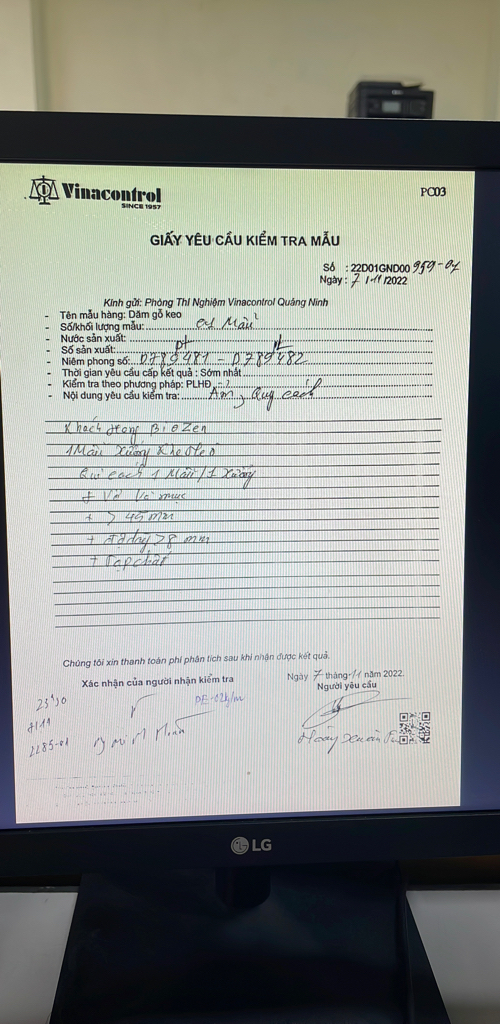 Vinacontrol
SINCE 1957
PC03
GIẤY YÊU CẦU KIỂM TRA MẪU
Số : 22D01GND00 959-01
Ngày : 7 / 11 /2022
Kính gửi: Phòng Thí Nghiệm Vinacontrol Quảng Ninh
- Tên mẫu hàng: Dăm gỗ keo
- Số/khối lượng mẫu: 01 Mẫu
- Nước sản xuất:
- Số sản xuất:
- Niêm phong số: D789481 - D789482
- Thời gian yêu cầu cấp kết quả : Sớm nhất
- Kiểm tra theo phương pháp: PLHĐ
- Nội dung yêu cầu kiểm tra: Ẩm, Quy cách
Khách Hàng BIOZen
1 Mẫu Xưởng
Qui cách 1 Mẫu / 1 Xưởng
+ Vỏ Và mục
+ > 45 mm
+ dày > 8 mm
+ Tạp chất
Chúng tôi xin thanh toán phí phân tích sau khi nhận được kết quả.
Ngày 7 tháng 11 năm 2022
Xác nhận của người nhận kiểm tra
Người yêu cầu
23h30
7/11
2285-01
Hoàng Xuân
LG